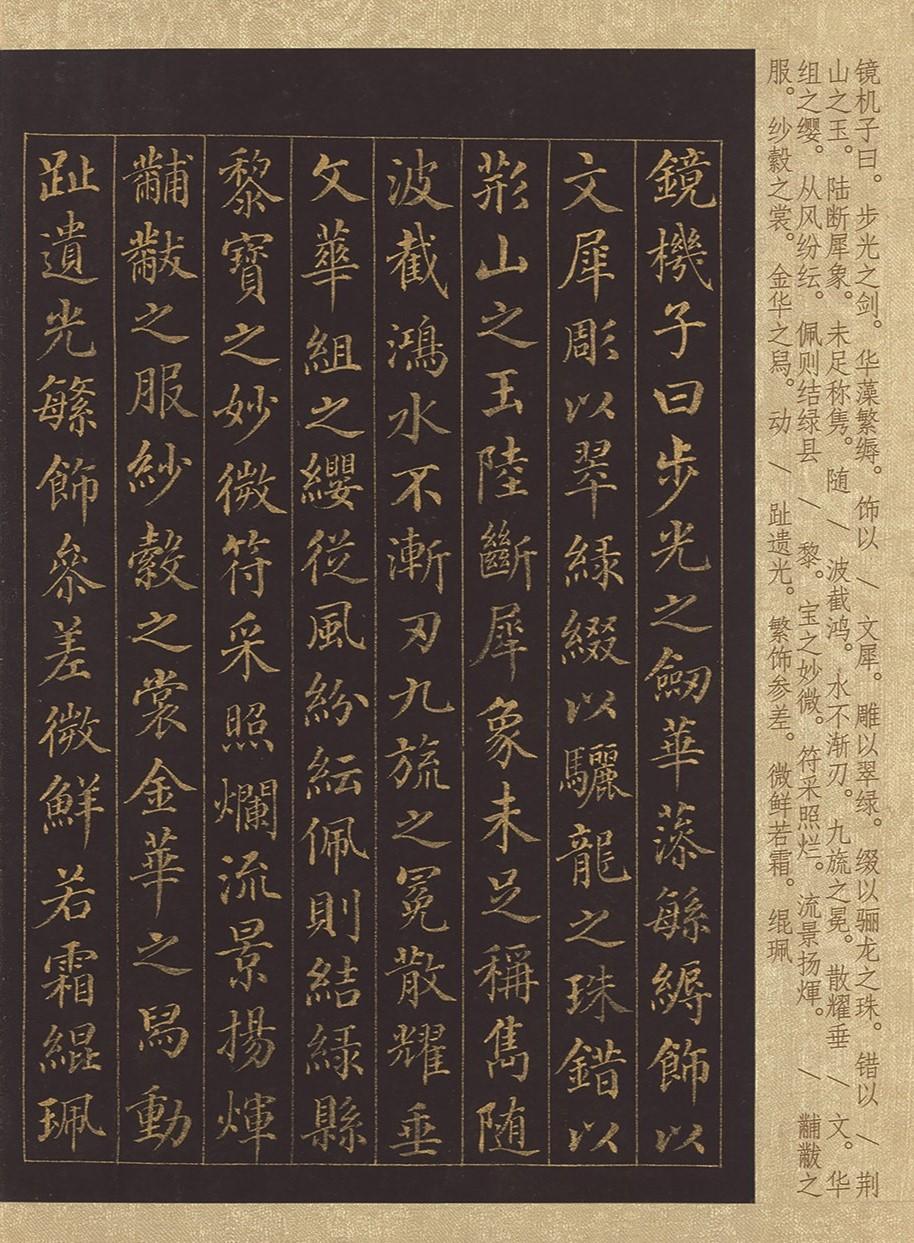 镜机子曰。步光之剑。华藻繁缛。饰以 / 文犀。雕以翠绿。缀以骊龙之珠。错以 / 荆
山之玉。陆断犀象。未足称隽。随 / 波截鸿。水不渐刃。九旒之冕。散耀垂 / 文。华
组之缨。从风纷纭。佩则结绿县 / 黎。宝之妙微。符采照烂。流景扬煇。 / 黼黻之
服。纱縠之裳。金华之舄。动 / 趾遗光。繁饰参差。微鲜若霜。绲珮
鏡機子曰步光之劒華藻緐縟飾以
文犀彫以翠緑綴以驪龍之珠錯以
荆山之玉陸斷犀象未足稱雋随
波截鴻水不漸刃九旒之冕散耀垂
文華組之纓從風紛紜佩則結緑縣
黎寶之妙微符采照爛流景揚煇
黼黻之服紗縠之裳金華之舄動
趾遺光繁飾參差微鮮若霜緄珮